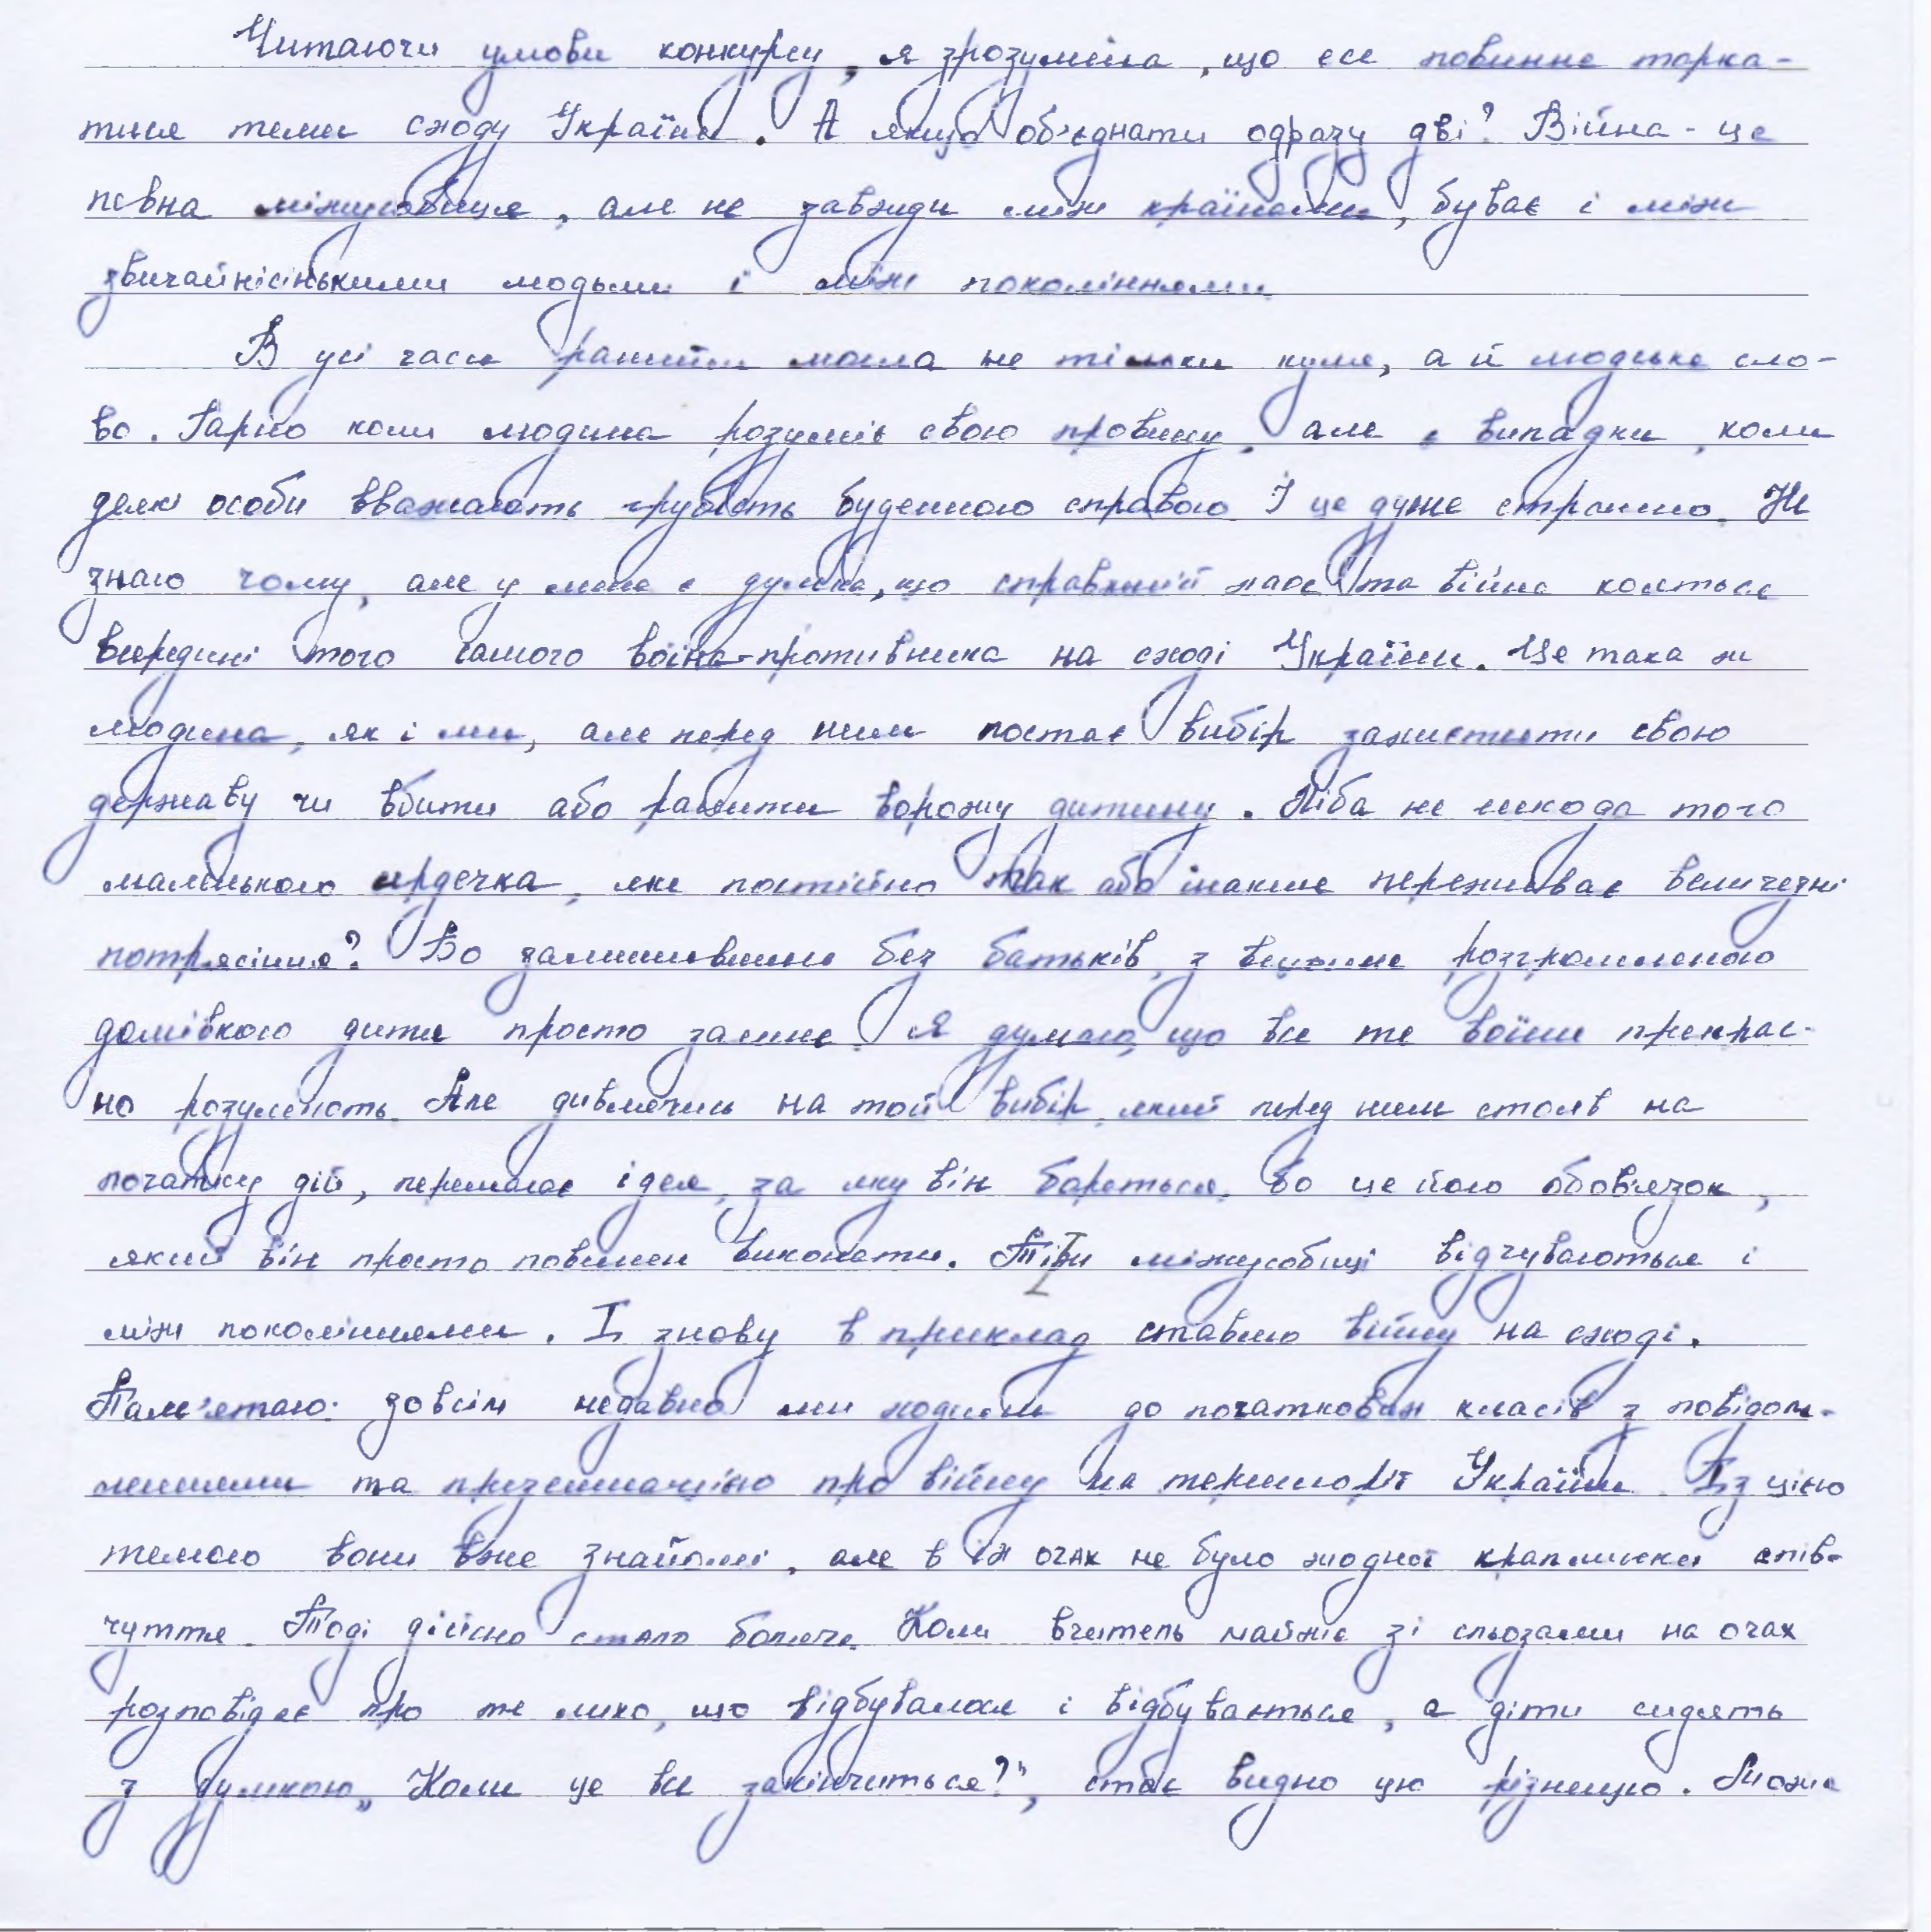 Читаючи умови конкурсу, я зрозуміла, що есе повинне торка-
тися теми сходу України. А якщо об'єднати одразу дві? Війна - це
певна міжусобиця, але не завжди між країнами, буває і між
звичайнісінькими людьми і між поколіннями.
В усі часи ранити могла не тільки куля, а й людське сло-
во. Гарно коли людина розуміє свою провину, але є випадки, коли
деякі особи вважають грубість буденною справою І це дуже страшно. Не
знаю чому, але у мене є думка, що справжній хаос та війна коїться
всередині того самого воїна-противника на сході України. Це така ж
людина, як і ми, але перед ним постає вибір захистити свою
державу чи вбити або ранити ворожу дитину. Хіба не шкода того
маленького сердечка, яке постійно так або інакше переживає величезні
потрясіння? Бо залишившись без батьків, з вщольне розгромленою
домівкою дитя просто загине. Я думаю, що все те воїни прекрас-
но розуміють. Але дивлячись на той вибір, який перед ним стояв на
початку дій, перемагає ідея, за яку він бореться, бо це його обов'язок,
який він просто повинен виконати. Тіні міжусобиці відчуваються і
між поколіннями. І знову в приклад ставлю війну на сході.
Пам'ятаю: зовсім недавно ми ходили до початкових класів з повідом-
леннями та презентацією про війну на території України. Із цією
темою вони вже знайомі, але в їх очах не було жодної краплинки спів-
чуття. Тоді дійсно стало боляче. Коли вчитель майже зі сльозами на очах
розповідає про те лихо, що відбувалося і відбувається, а діти сидять
з думкою „Коли це все закінчиться?", стає видно цю різницю. Може